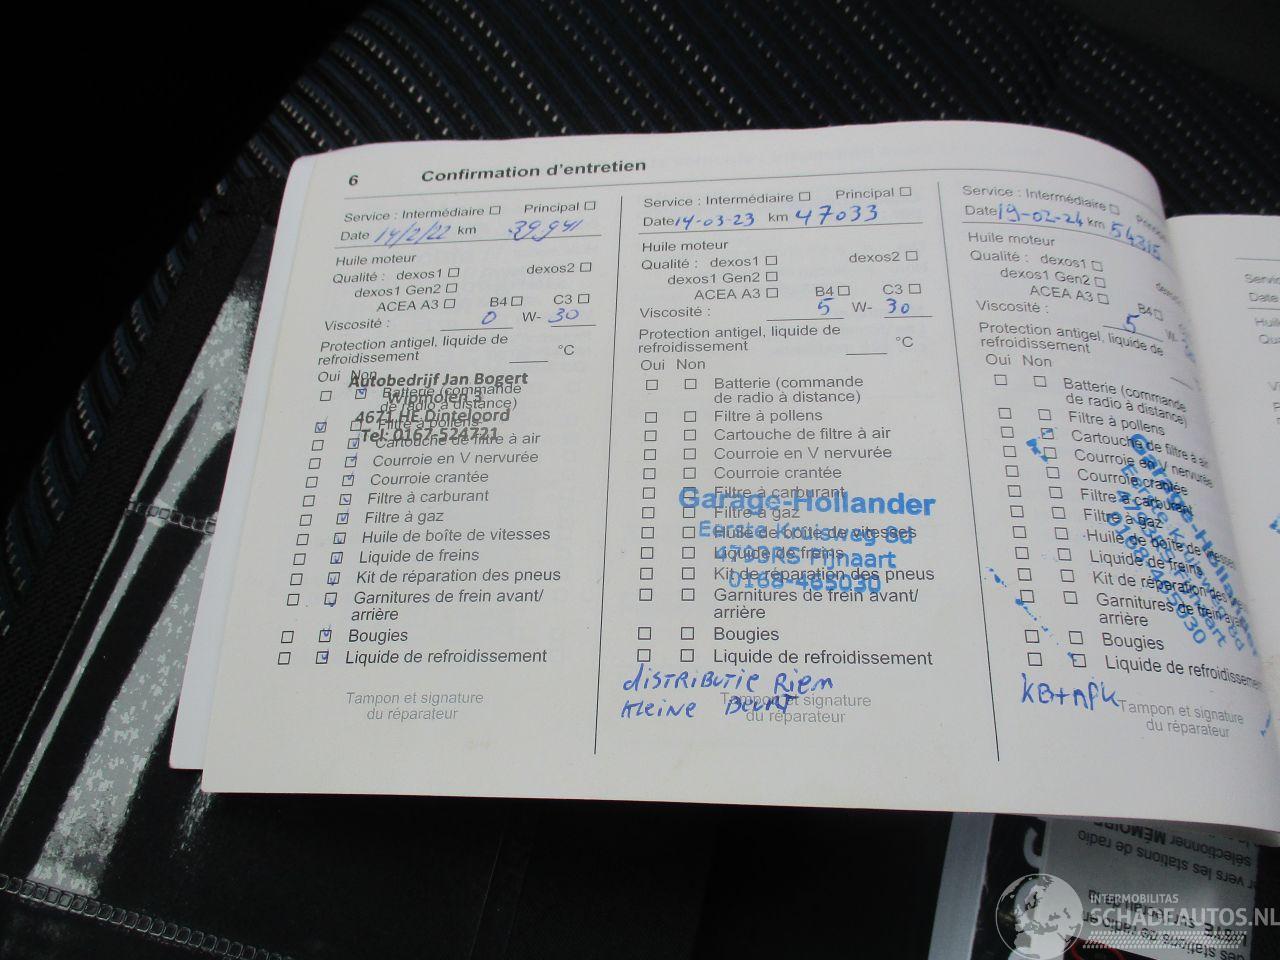 6 Confirmation d'entretien
Service : Intermédiaire Principal
Date 14/2/22 km 39941
Huile moteur
Qualité : dexos1 dexos2
dexos1 Gen2
ACEA A3 B4 C3
Viscosité : 0 W- 30
Protection antigel, liquide de
refroidissement °C
Oui Non
Autobedrijf Jan Bogert
Wipmolen 3
4671 HE Dinteloord
Tel: 0167-524721
Batterie (commande
de radio à distance)
Filtre à pollens
Cartouche de filtre à air
Courroie en V nervurée
Courroie crantée
Filtre à carburant
Filtre à gaz
Huile de boîte de vitesses
Liquide de freins
Kit de réparation des pneus
Garnitures de frein avant/
arrière
Bougies
Liquide de refroidissement
Tampon et signature
du réparateur
Service : Intermédiaire Principal
Date 14-03-23 km 47033
Huile moteur
Qualité : dexos1 dexos2
dexos1 Gen2
ACEA A3 B4 C3
Viscosité : 5 W- 30
Protection antigel, liquide de
refroidissement °C
Oui Non
Batterie (commande
de radio à distance)
Filtre à pollens
Cartouche de filtre à air
Courroie en V nervurée
Courroie crantée
Filtre à carburant
Garage-Hollander
Filtre à gaz
Eerste Kruisweg 8d
Huile de boîte de vitesses
Liquide de freins
4793RS Fijnaart
Kit de réparation des pneus
0168-465030
Garnitures de frein avant/
arrière
Bougies
Liquide de refroidissement
DISTRIBUTIE RIEM
KLEINE BEURT
Tampon et signature
du réparateur
Service : Intermédiaire
Date 19-02-24 km 54315
Huile moteur
Qualité : dexos1
dexos1 Gen2
ACEA A3 B4
Viscosité : 5 W-
Protection antigel, liquide de
refroidissement
Oui Non
Batterie (commande
de radio à distance)
Filtre à pollens
Cartouche de filtre à air
Courroie en V nervurée
Courroie crantée
Filtre à carburant
Filtre à gaz
Huile de boîte de vitesses
Liquide de freins
Kit de réparation des
Garnitures de frein
arrière
Bougies
Liquide de refroidissement
Garage-Hollander
Eerste Kruisweg 8d
4793RS Fijnaart
0168-465030
KB+APK
Tampon et signature
du réparateur
MÉMOIRE
sélectionner
vers les stations de radio
INTERMOBILITAS
SCHADEAUTOS.NL